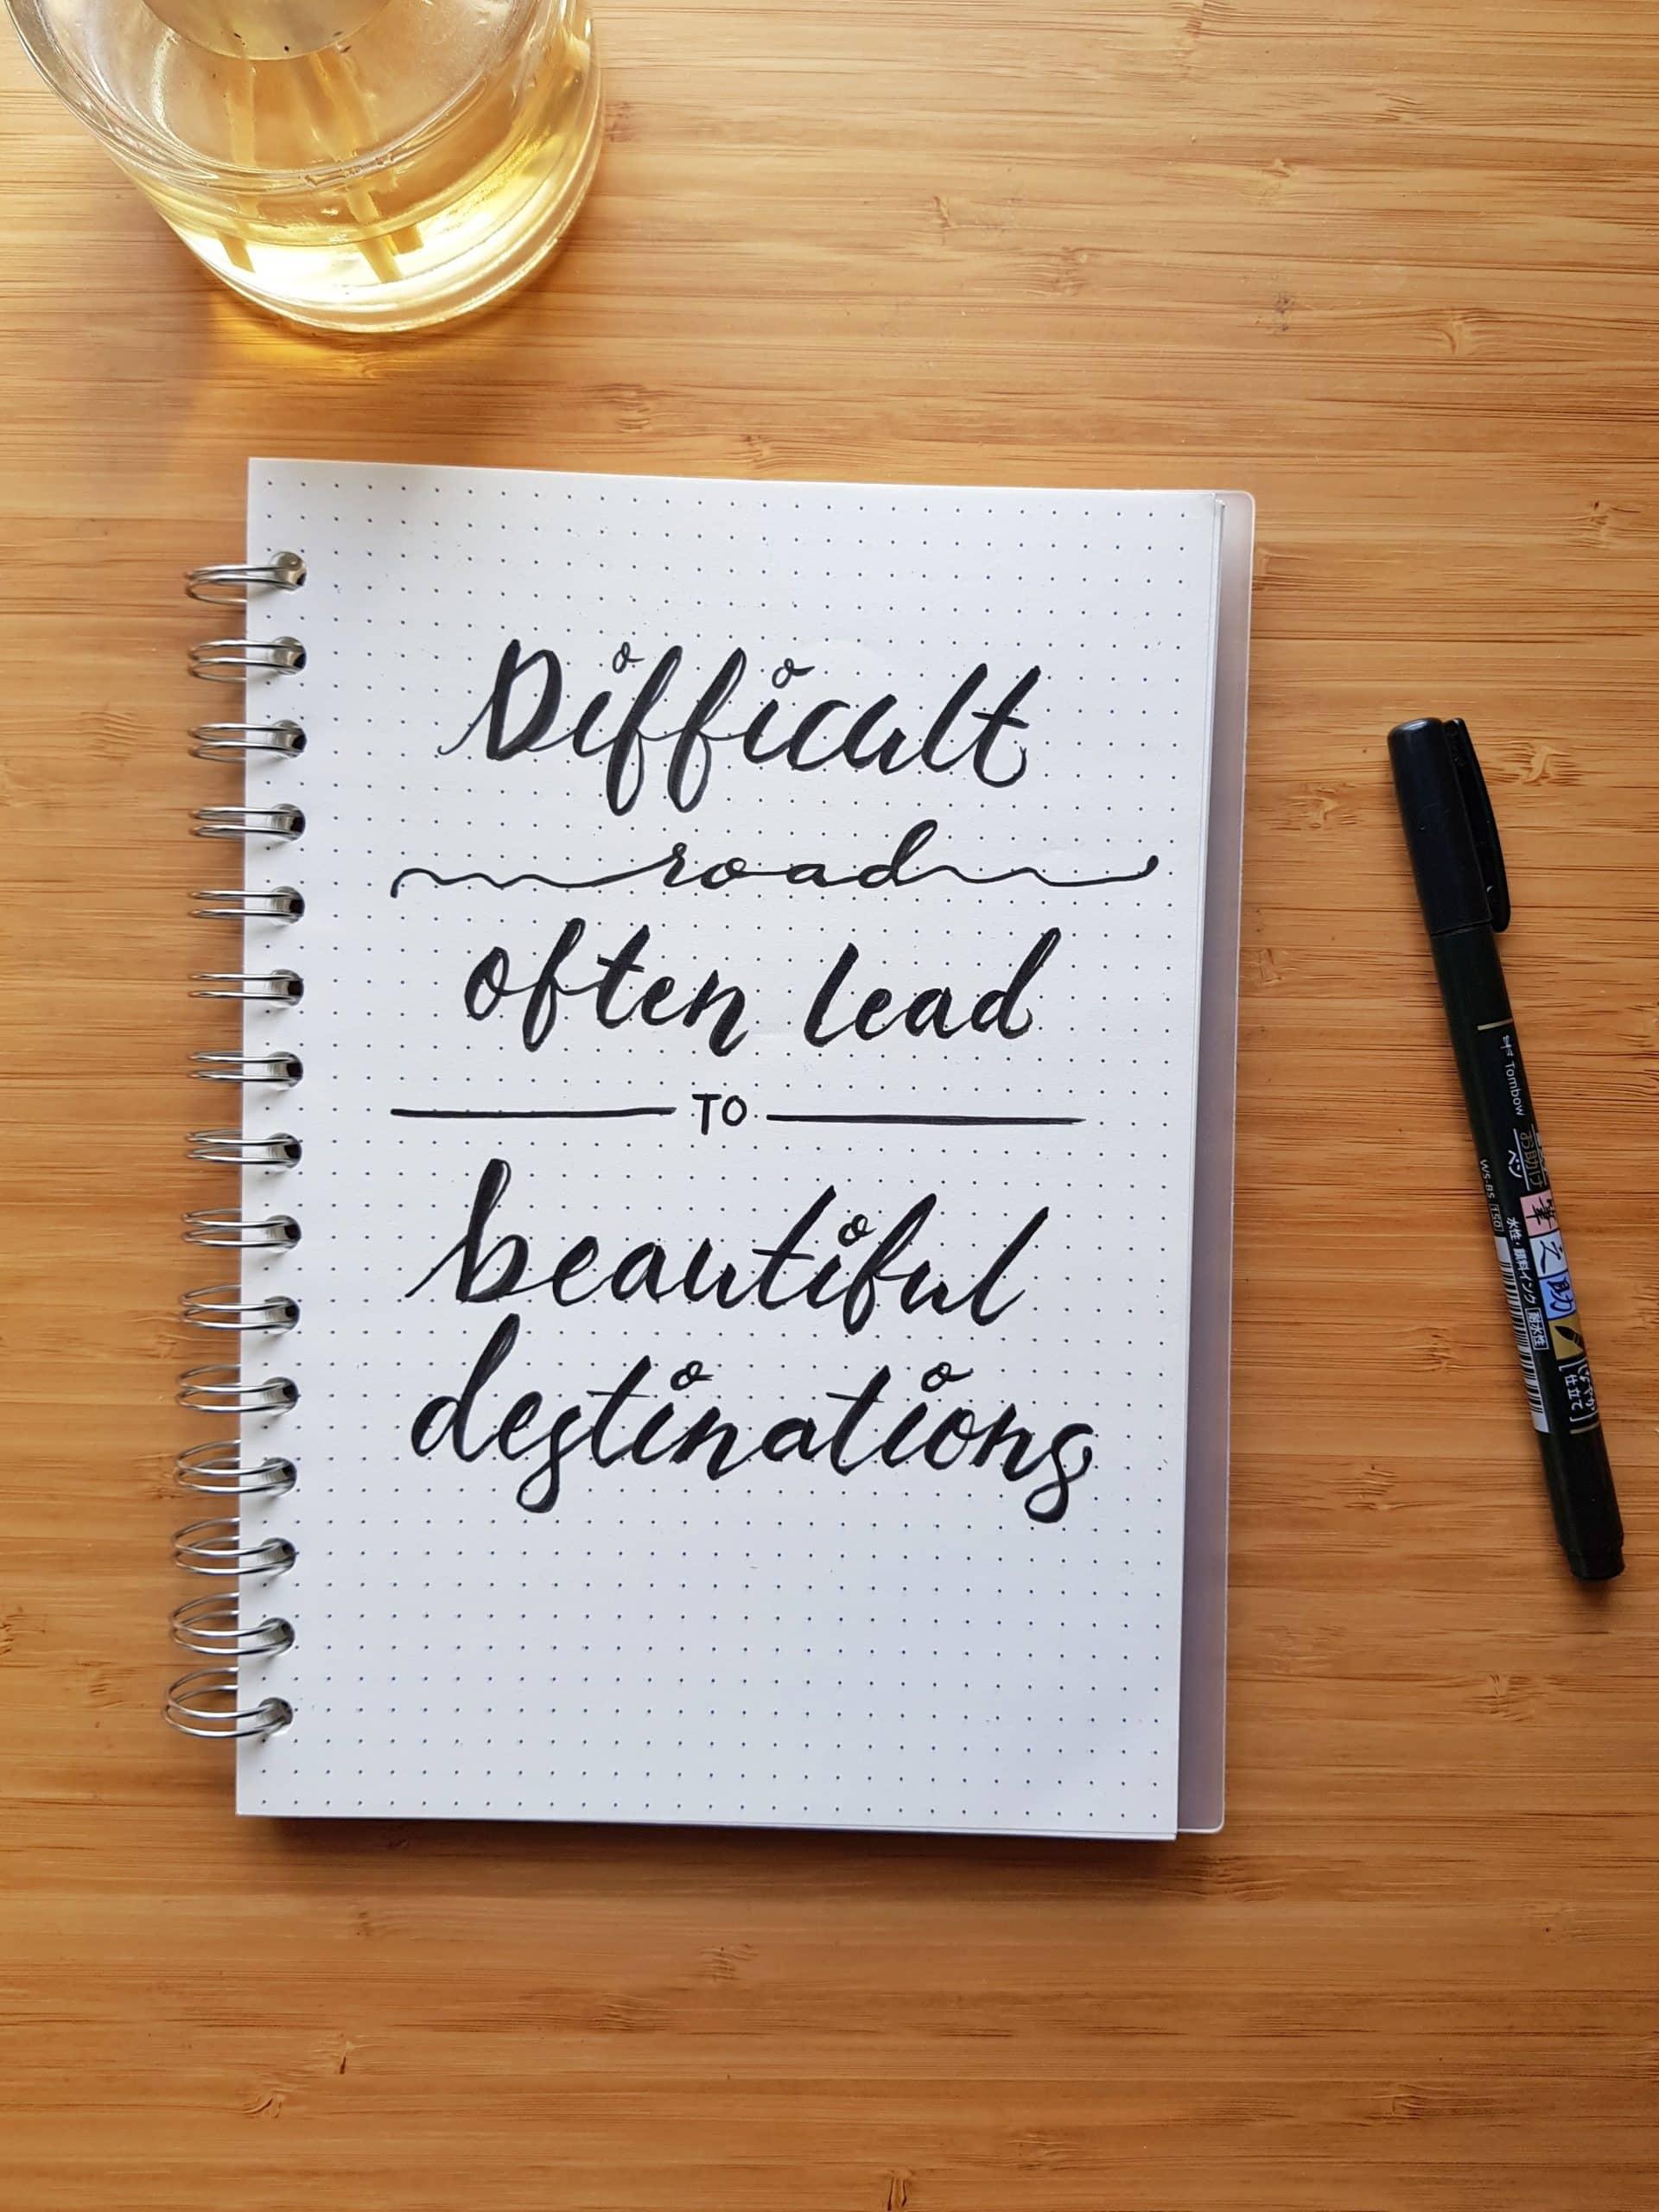 Difficult
road
often lead
TO
beautiful
destinations
Tombow
WS-BS 150
水性・顔料インク